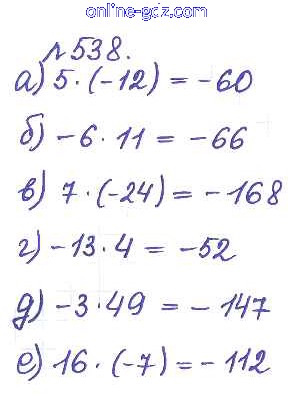 online-gdz.com
№538.
а) 5·(-12) = -60
б) -6·11 = -66
в) 7·(-24) = -168
г) -13·4 = -52
д) -3·49 = -147
е) 16·(-7) = -112